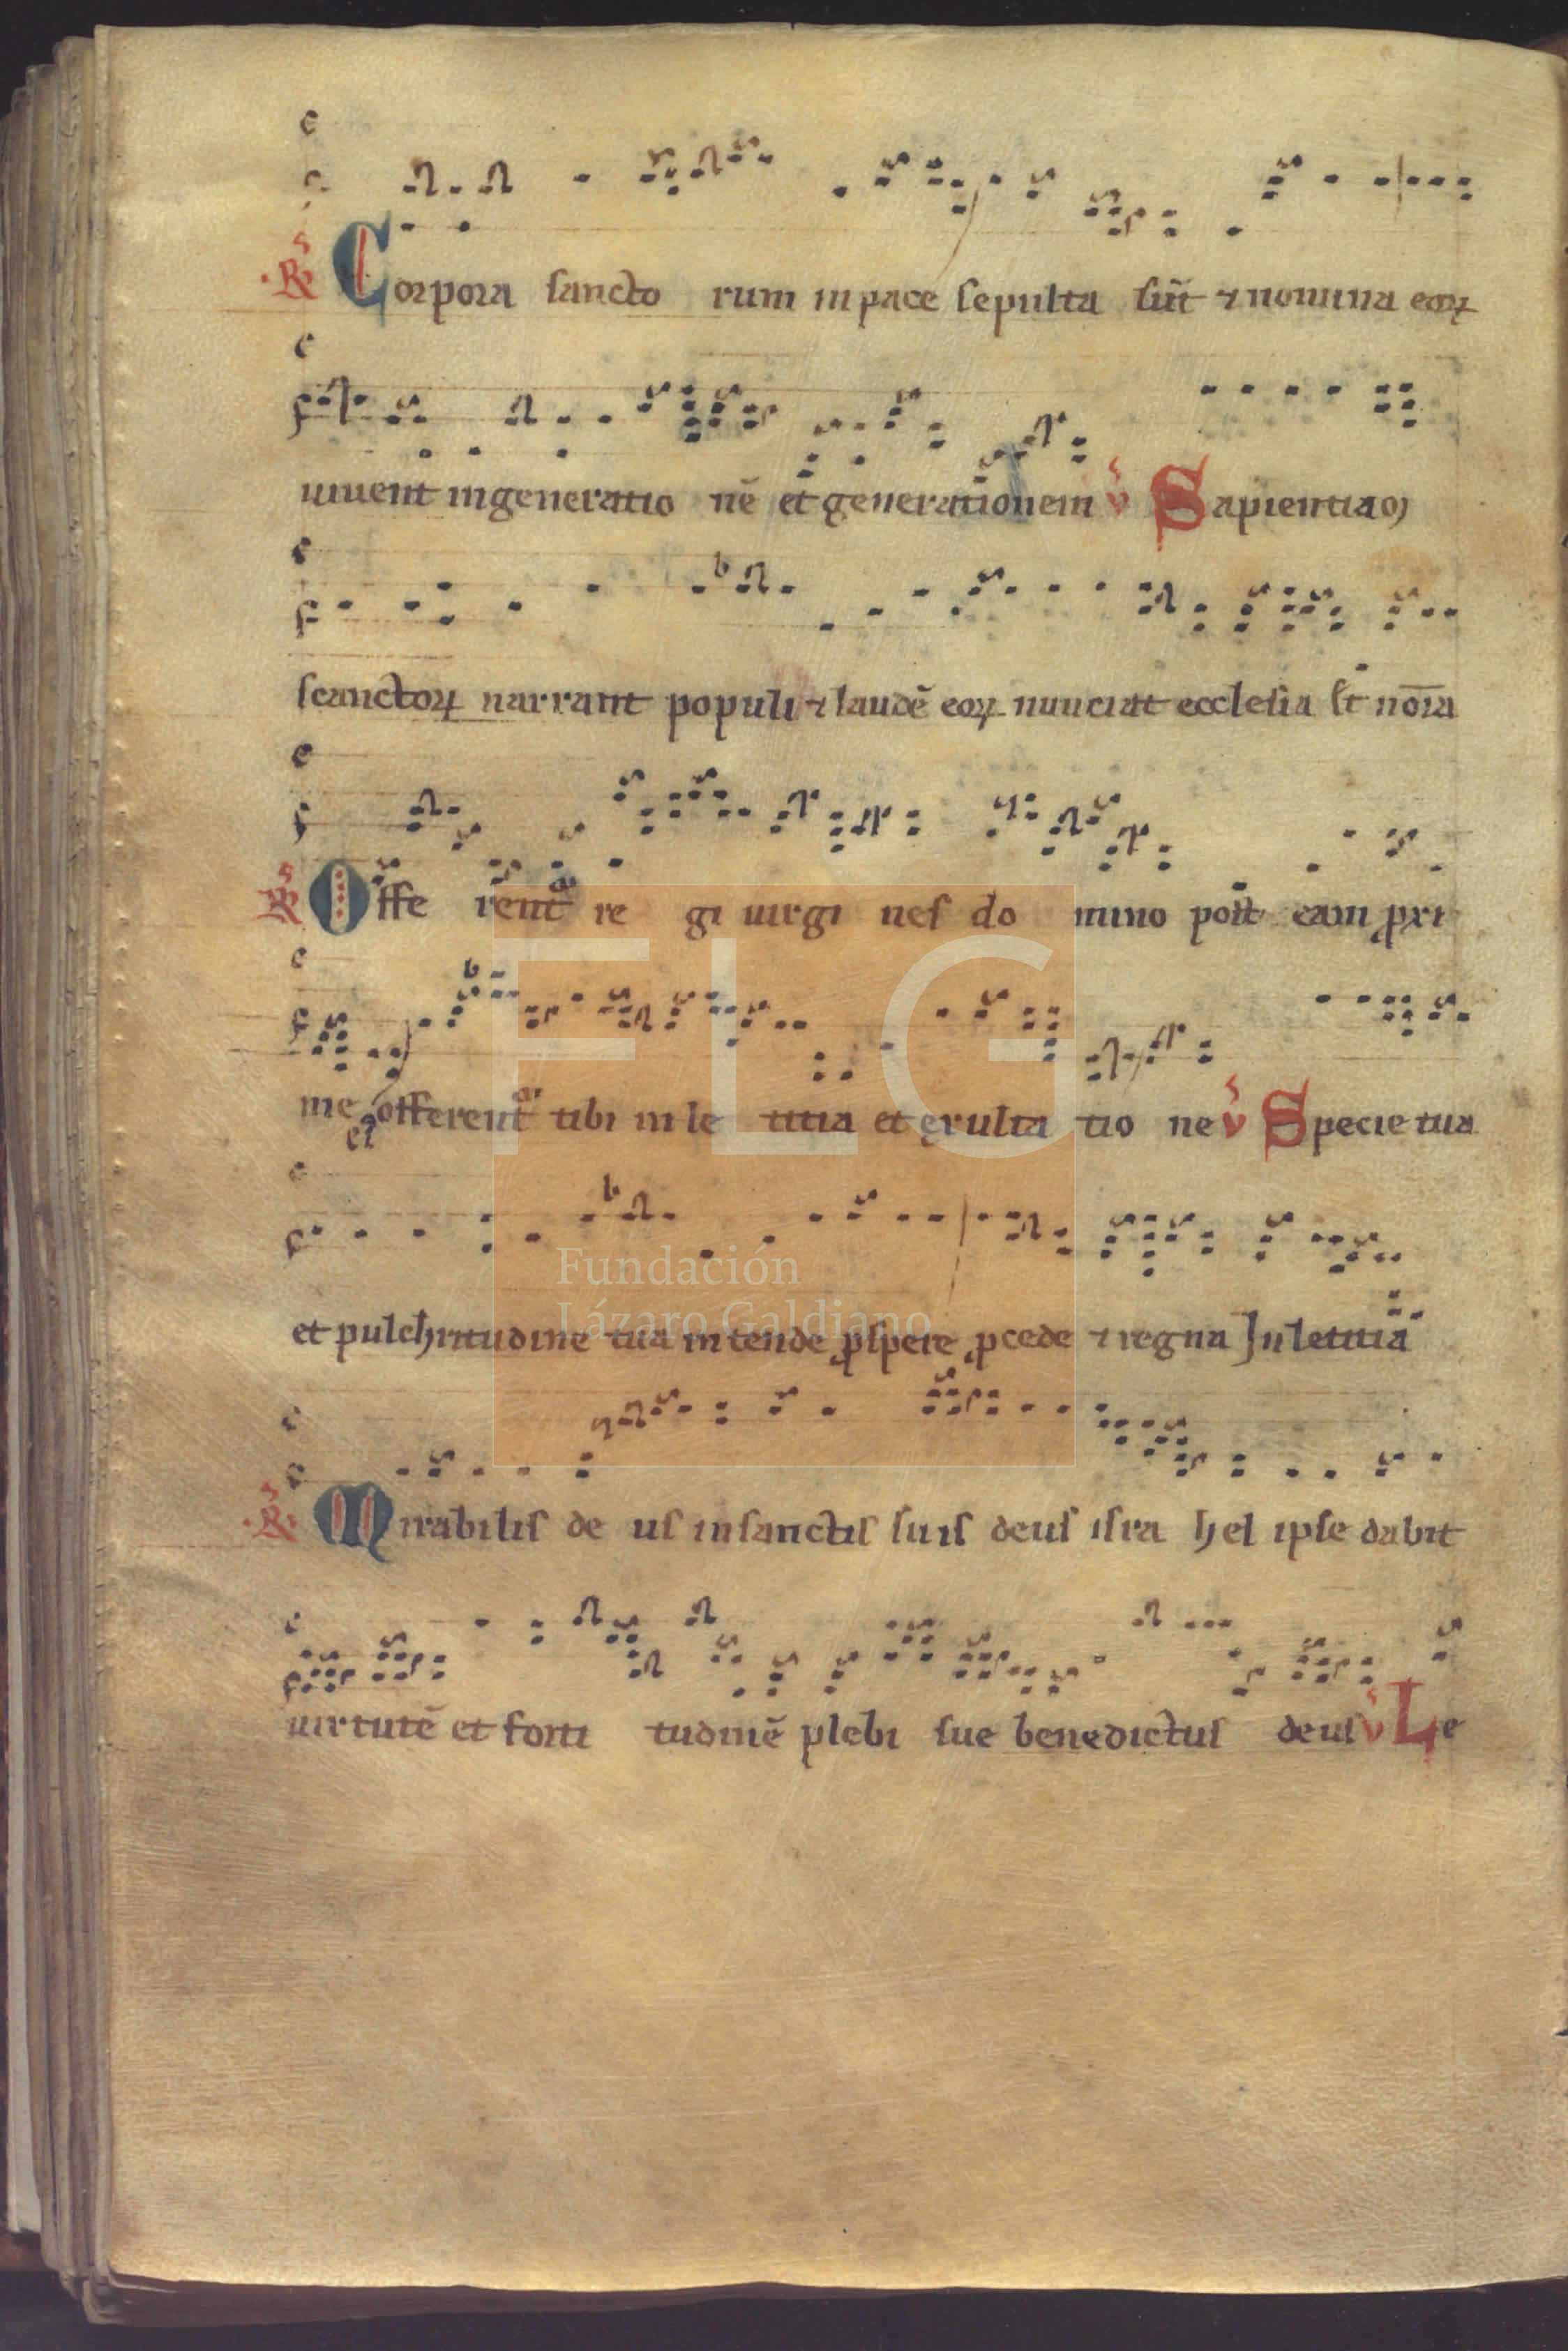 R̃ Corpora sancto rum in pace sepulta sūt ⁊ nomina eoꝝ
uiuent in generatio nē et generationem ṽ Sapientiam
scanctoꝝ narrant populi ⁊ laudē eoꝝ nunciat ecclesia Et nōīa
R̃ Offe rent re gi uirgi nes do mino post eam ꝓxi
me ei offerent tibi in le titia et exulta tio ne ṽ Specie tua
et pulchritudine tua intende ꝓspere ꝓcede ⁊ regna In letitia
R̃ Mirabilis de us in sanctis suis deus isra hel ipse dabit
uirtutē et forti tudinē plebi sue benedictus deus ṽ Le
FLG
Fundación
Lázaro Galdiano